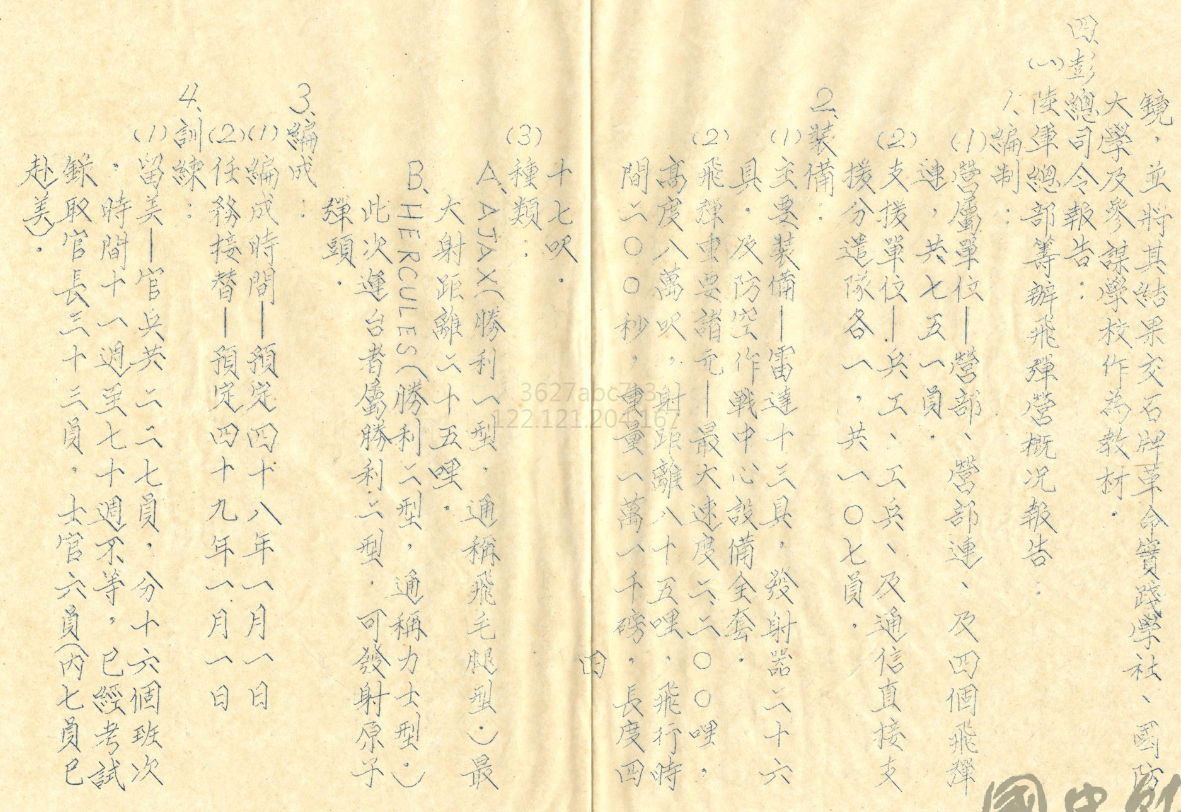 鏡，並將其結果交石牌革命實踐學社、國防
大學及參謀學校作為教材．
四、彭總司令報告：
(一)陸軍總部籌辦飛彈營概況報告．
1、編制：
(1)營屬單位—營部、營部連、及四個飛彈
連，共七五一員．
(2)支援單位—兵工、工兵、及通信直接支
援分遣隊各一，共一〇七員，
2、裝備：
(1)主要裝備—雷達十三具，發射器二十六
具，及防空作戰中心設備全套．
(2)飛彈重要諸元—最大速度二二〇〇哩，
高度八萬呎，射距離八十五哩、飛行時
間二〇〇秒，重量一萬一千磅，長度四
四
十七呎．
(3)種類：
A、AJAX（勝利一型，通稱飛毛腿型．）最
大射距離二十五哩．
B、HERCULES（勝利二型，通稱力士型．）
此次運台者屬勝利二型．可發射原子
彈頭．
3、編成：
(1)編成時間—預定四十八年一月一日
(2)任務接替—預定四十九年一月一日
4、訓練：
(1)留美—官兵共二二七員，分十六個班次
，時間十一週至七十週不等，已經考試
錄取官長三十三員，士官六員（內七員已
赴美）．
3627abc7
122.121.204.167
國史館